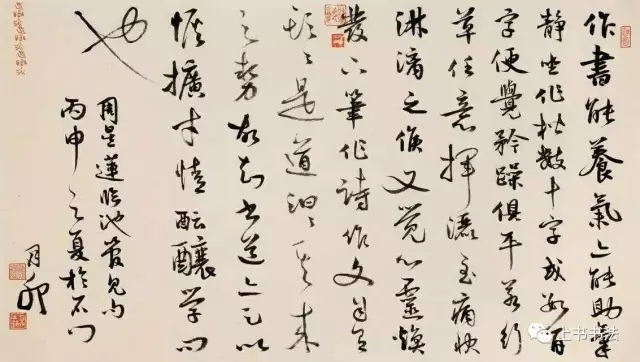 作書能養氣亦能助氣
静坐作楷數十字或數百
字便覺矜躁俱平若行
草任意揮灑至痛快
淋漓之候又覺心靈煥
發下筆作詩作文自有
頭〻是道汩〻其來
之勢故知書道亦足以
恢擴才情醖釀學問
也
周星蓮臨池管見句
丙申之夏於石門
上书书法